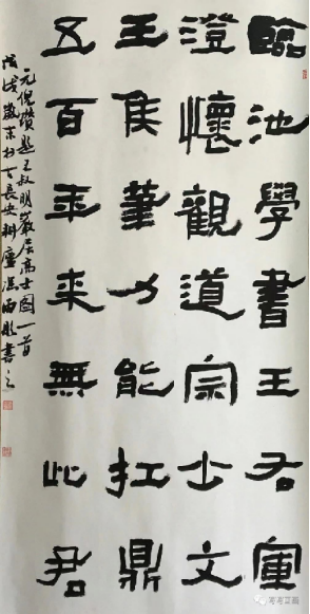 臨池學書王右軍
澄懷觀道宗少文
王侯筆力能扛鼎
五百年來無此君
元倪瓚題王叔明巖居高士圖一首
戊戌歲末於長安書之